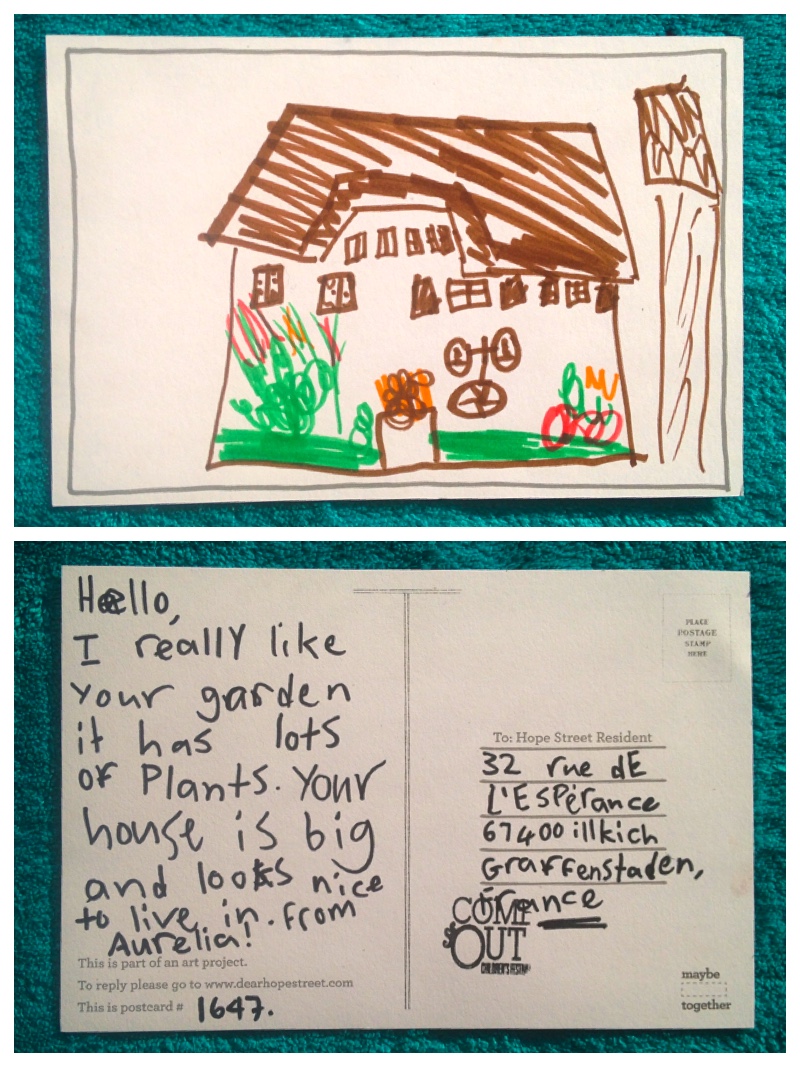 Hello,
I really like
your garden
it has lots
of Plants. Your
house is big
and looks nice
to live in. From
Aurelia!
This is part of an art project.
To reply please go to www.dearhopestreet.com
This is postcard # 1647.
PLACE
POSTAGE
STAMP
HERE
To: Hope Street Resident
32 rue dE
L'ESPérance
67400 illkich
Graffenstaden,
France
COME
OUT
CHILDREN'S FESTIVAL
maybe
together